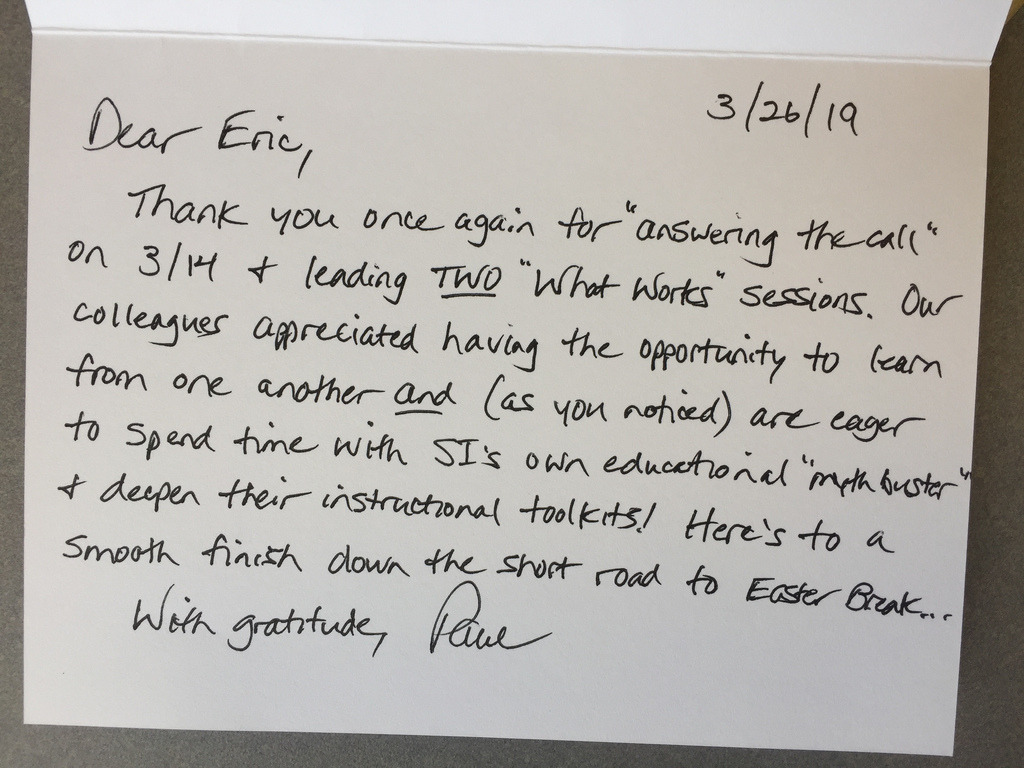 3/26/19
Dear Eric,
Thank you once again for "answering the call"
on 3/14 + leading TWO "What Works" sessions. Our
colleagues appreciated having the opportunity to learn
from one another and (as you noticed) are eager
to spend time with SI's own educational "myth buster"
+ deepen their instructional toolkits! Here's to a
smooth finish down the short road to Easter Break...
With gratitude,